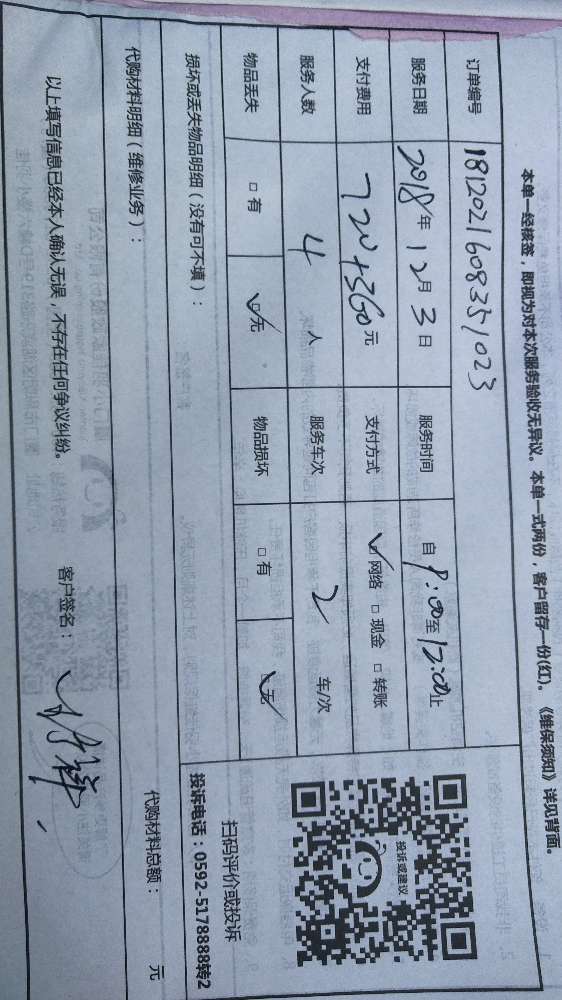 本单一经核签，即视为对本次服务验收无异议。本单一式两份，客户留存一份(红)。《维保须知》详见背面。
订单编号 181202160835\1023
服务日期 2018年12月3日 服务时间 自9:00至12:00止
支付费用 720+360元 支付方式 ☑网络 □现金 □转账
服务人数 4人 服务车次 2 车/次
物品丢失 □有 ☑无 物品损坏 □有 ☑无
投诉或建议
扫码评价或投诉
投诉电话：0592-5178888转2
损坏或丢失物品明细（没有可不填）：
代购材料明细（维修业务）： 代购材料总额： 元
以上填写信息已经本人确认无误，不存在任何争议纠纷。 客户签名：